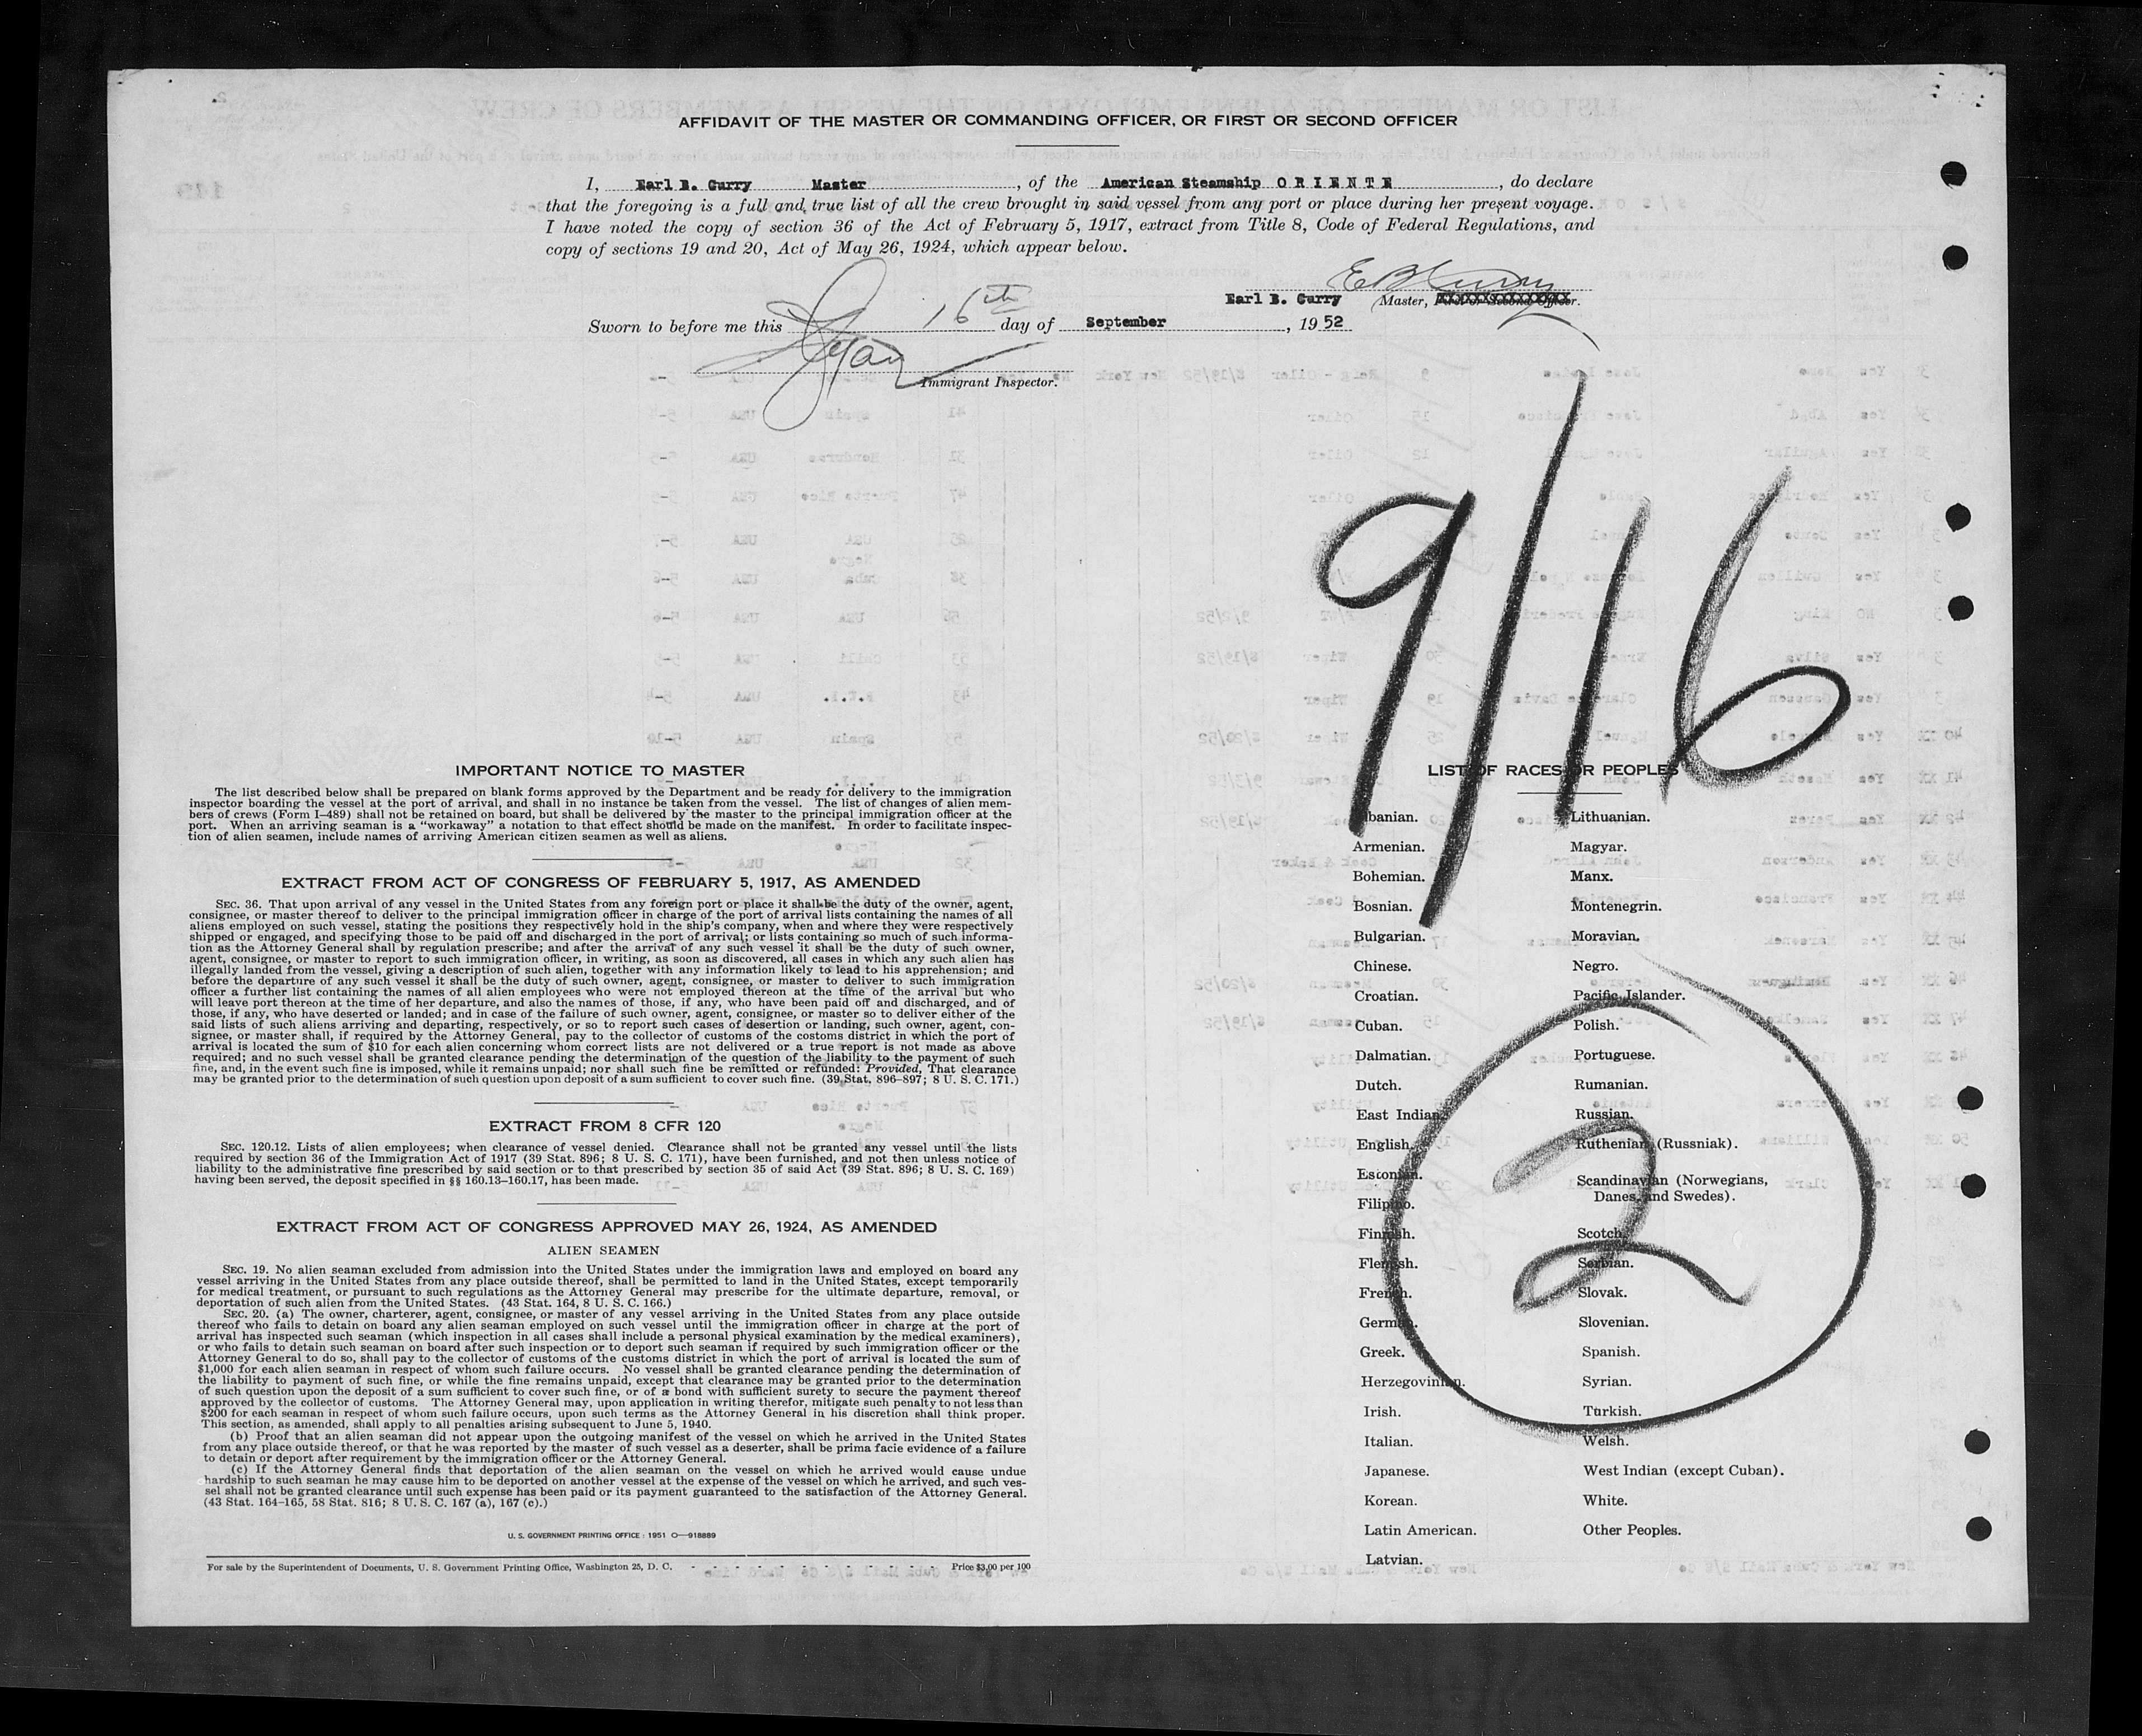 AFFIDAVIT OF THE MASTER OR COMMANDING OFFICER, OR FIRST OR SECOND OFFICER
I, Earl B. Curry Master, of the American Steamship O R I E N T E, do declare
that the foregoing is a full and true list of all the crew brought in said vessel from any port or place during her present voyage.
I have noted the copy of section 36 of the Act of February 5, 1917, extract from Title 8, Code of Federal Regulations, and
copy of sections 19 and 20, Act of May 26, 1924, which appear below.
E B Curry
Earl B. Curry (Master, First or Second Officer.
Sworn to before me this 16th day of September, 19 52
Immigrant Inspector.
9/16
IMPORTANT NOTICE TO MASTER
The list described below shall be prepared on blank forms approved by the Department and be ready for delivery to the immigration
inspector boarding the vessel at the port of arrival, and shall in no instance be taken from the vessel. The list of changes of alien mem-
bers of crews (Form I–489) shall not be retained on board, but shall be delivered by the master to the principal immigration officer at the
port. When an arriving seaman is a “workaway” a notation to that effect should be made on the manifest. In order to facilitate inspec-
tion of alien seamen, include names of arriving American citizen seamen as well as aliens.
EXTRACT FROM ACT OF CONGRESS OF FEBRUARY 5, 1917, AS AMENDED
SEC. 36. That upon arrival of any vessel in the United States from any foreign port or place it shall be the duty of the owner, agent,
consignee, or master thereof to deliver to the principal immigration officer in charge of the port of arrival lists containing the names of all
aliens employed on such vessel, stating the positions they respectively hold in the ship's company, when and where they were respectively
shipped or engaged, and specifying those to be paid off and discharged in the port of arrival; or lists containing so much of such informa-
tion as the Attorney General shall by regulation prescribe; and after the arrival of any such vessel it shall be the duty of such owner,
agent, consignee, or master to report to such immigration officer, in writing, as soon as discovered, all cases in which any such alien has
illegally landed from the vessel, giving a description of such alien, together with any information likely to lead to his apprehension; and
before the departure of any such vessel it shall be the duty of such owner, agent, consignee, or master to deliver to such immigration
officer a further list containing the names of all alien employees who were not employed thereon at the time of the arrival but who
will leave port thereon at the time of her departure, and also the names of those, if any, who have been paid off and discharged, and of
those, if any, who have deserted or landed; and in case of the failure of such owner, agent, consignee, or master so to deliver either of the
said lists of such aliens arriving and departing, respectively, or so to report such cases of desertion or landing, such owner, agent, con-
signee, or master shall, if required by the Attorney General, pay to the collector of customs of the costoms district in which the port of
arrival is located the sum of $10 for each alien concerning whom correct lists are not delivered or a true report is not made as above
required; and no such vessel shall be granted clearance pending the determination of the question of the liability to the payment of such
fine, and, in the event such fine is imposed, while it remains unpaid; nor shall such fine be remitted or refunded: Provided, That clearance
may be granted prior to the determination of such question upon deposit of a sum sufficient to cover such fine. (39 Stat. 896–897; 8 U. S. C. 171.)
EXTRACT FROM 8 CFR 120
SEC. 120.12. Lists of alien employees; when clearance of vessel denied. Clearance shall not be granted any vessel until the lists
required by section 36 of the Immigration Act of 1917 (39 Stat. 896; 8 U. S. C. 171), have been furnished, and not then unless notice of
liability to the administrative fine prescribed by said section or to that prescribed by section 35 of said Act (39 Stat. 896; 8 U. S. C. 169)
having been served, the deposit specified in §§ 160.13–160.17, has been made.
EXTRACT FROM ACT OF CONGRESS APPROVED MAY 26, 1924, AS AMENDED
ALIEN SEAMEN
SEC. 19. No alien seaman excluded from admission into the United States under the immigration laws and employed on board any
vessel arriving in the United States from any place outside thereof, shall be permitted to land in the United States, except temporarily
for medical treatment, or pursuant to such regulations as the Attorney General may prescribe for the ultimate departure, removal, or
deportation of such alien from the United States. (43 Stat. 164, 8 U. S. C. 166.)
SEC. 20. (a) The owner, charterer, agent, consignee, or master of any vessel arriving in the United States from any place outside
thereof who fails to detain on board any alien seaman employed on such vessel until the immigration officer in charge at the port of
arrival has inspected such seaman (which inspection in all cases shall include a personal physical examination by the medical examiners),
or who fails to detain such seaman on board after such inspection or to deport such seaman if required by such immigration officer or the
Attorney General to do so, shall pay to the collector of customs of the customs district in which the port of arrival is located the sum of
$1,000 for each alien seaman in respect of whom such failure occurs. No vessel shall be granted clearance pending the determination of
the liability to payment of such fine, or while the fine remains unpaid, except that clearance may be granted prior to the determination
of such question upon the deposit of a sum sufficient to cover such fine, or of a bond with sufficient surety to secure the payment thereof
approved by the collector of customs. The Attorney General may, upon application in writing therefor, mitigate such penalty to not less than
$200 for each seaman in respect of whom such failure occurs, upon such terms as the Attorney General in his discretion shall think proper.
This section, as amended, shall apply to all penalties arising subsequent to June 5, 1940.
(b) Proof that an alien seaman did not appear upon the outgoing manifest of the vessel on which he arrived in the United States
from any place outside thereof, or that he was reported by the master of such vessel as a deserter, shall be prima facie evidence of a failure
to detain or deport after requirement by the immigration officer or the Attorney General.
(c) If the Attorney General finds that deportation of the alien seaman on the vessel on which he arrived would cause undue
hardship to such seaman he may cause him to be deported on another vessel at the expense of the vessel on which he arrived, and such ves-
sel shall not be granted clearance until such expense has been paid or its payment guaranteed to the satisfaction of the Attorney General.
(43 Stat. 164–165, 58 Stat. 816; 8 U. S. C. 167 (a), 167 (c).)
U. S. GOVERNMENT PRINTING OFFICE : 1951 O—918889
For sale by the Superintendent of Documents, U. S. Government Printing Office, Washington 25, D. C. - - - - - - - - - - - Price $3.00 per 100
LIST OF RACES OR PEOPLES
Albanian.
Armenian.
Bohemian.
Bosnian.
Bulgarian.
Chinese.
Croatian.
Cuban.
Dalmatian.
Dutch.
East Indian.
English.
Estonian.
Filipino.
Finnish.
Flemish.
French.
German.
Greek.
Herzegovinian.
Irish.
Italian.
Japanese.
Korean.
Latin American.
Latvian.
Lithuanian.
Magyar.
Manx.
Montenegrin.
Moravian.
Negro.
Pacific Islander.
Polish.
Portuguese.
Rumanian.
Russian.
Ruthenian (Russniak).
Scandinavian (Norwegians,
Danes, and Swedes).
Scotch.
Serbian.
Slovak.
Slovenian.
Spanish.
Syrian.
Turkish.
Welsh.
West Indian (except Cuban).
White.
Other Peoples.
2